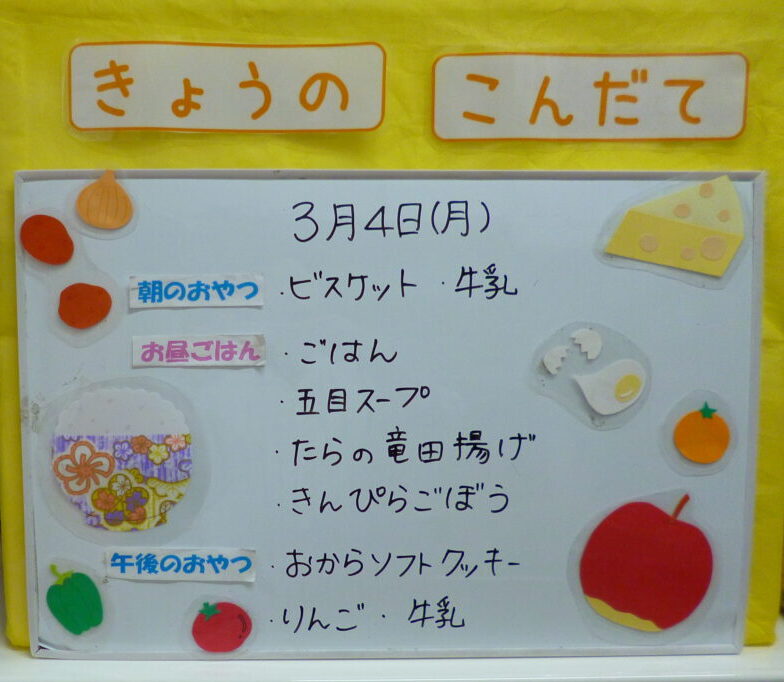 きょうの こんだて
3月4日(月)
朝のおやつ ・ビスケット ・牛乳
お昼ごはん ・ごはん
・五目スープ
・たらの竜田揚げ
・きんぴらごぼう
午後のおやつ ・おからソフトクッキー
・りんご ・牛乳